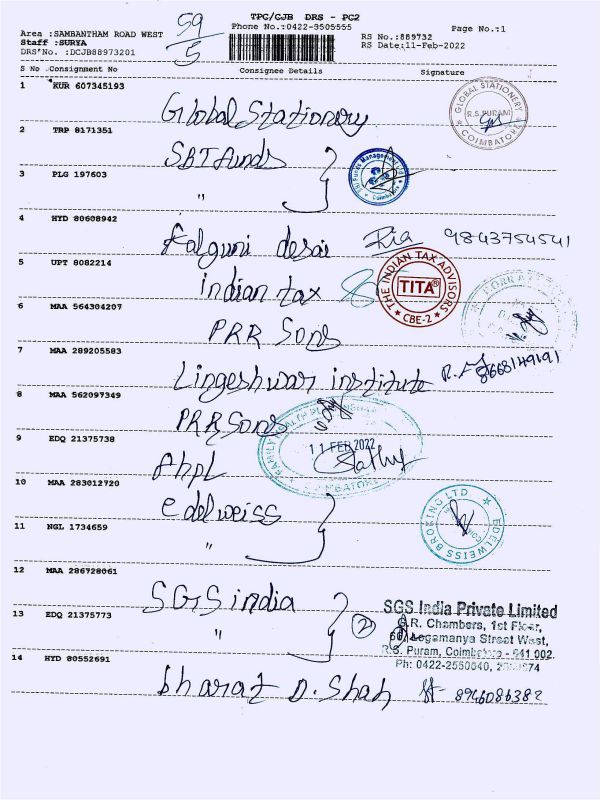 59
5
TPC/CJB DRS - PC2
Phone No.:0422-9505555
Page No.:1
Area :SAMBANTHAM ROAD WEST
Staff :SURYA
DRS No. :DCJB88973201
RS No.:889732
RS Date:11-Feb-2022
S No Consignment No Consignee Details Signature
1 KUR 607345193
Global Stationery
GLOBAL STATIONERY
R.S.PURAM
COIMBATORE
2 TRP 8171351
SBI funds
SBI Funds Management
3 PLG 197603
"
4 HYD 80608942
falguni desai Ria 9843754541
5 UPT 8082214
indian tax
THE INDIAN TAX ADVISORS
TITA®
CBE-2
6 MAA 564304207
PRR Sons
7 MAA 289205583
Lingeshwar institute 8668149191
8 MAA 562097349
PRR Sons
9 EDQ 21375738
FAMILY HEALTH PLAN
11 FEB 2022
COIMBATORE
Ahpl
10 MAA 283012720
edelweiss
EDELWEISS BROKING LTD
11 NGL 1734659
"
12 MAA 286728061
SGS india
13 EDQ 21375773
"
2
SGS India Private Limited
G.R. Chambers, 1st Floor,
60, Logamanya Street West,
R.S. Puram, Coimbatore - 641 002.
Ph: 0422-2550040,
14 HYD 80552691
bharat D. Shah 8946086382